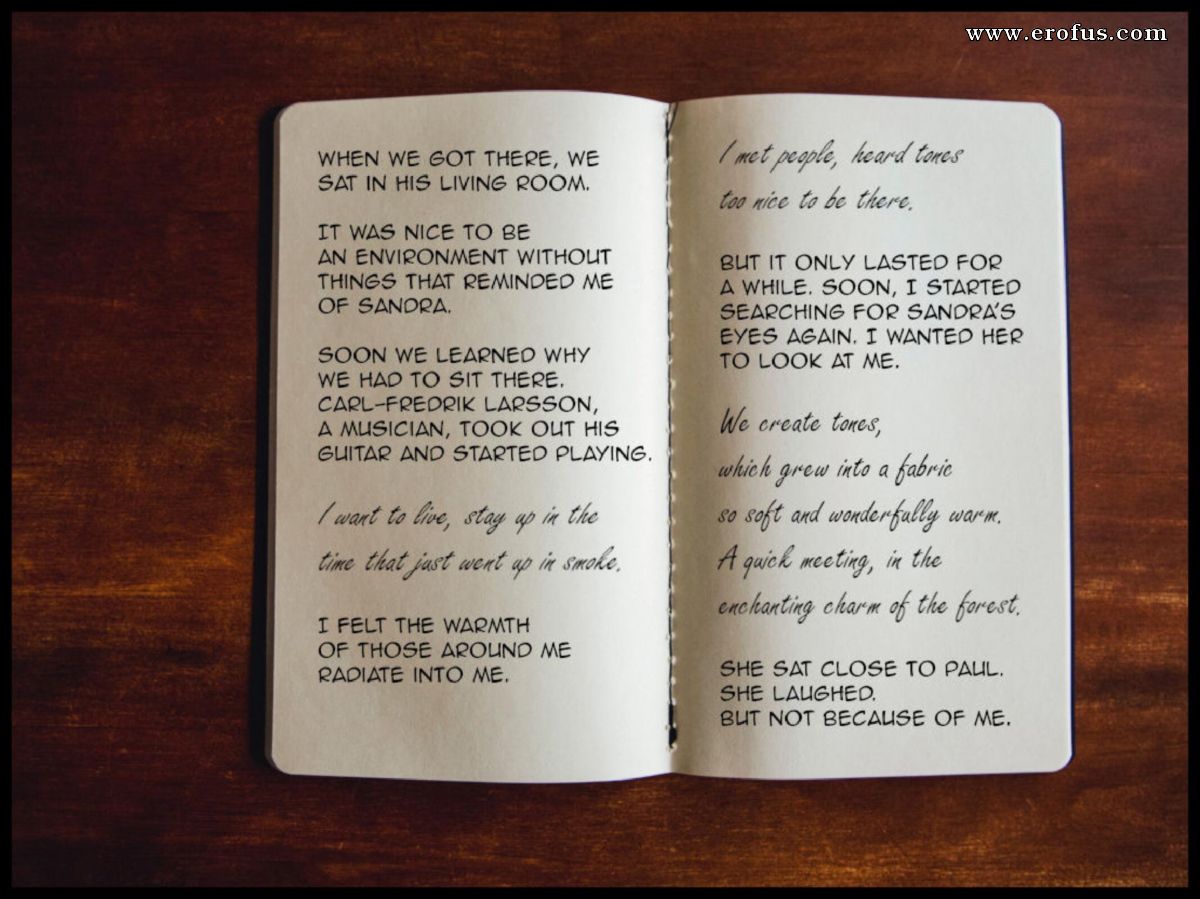 www.erofus.com
WHEN WE GOT THERE, WE
SAT IN HIS LIVING ROOM.
IT WAS NICE TO BE
AN ENVIRONMENT WITHOUT
THINGS THAT REMINDED ME
OF SANDRA.
SOON WE LEARNED WHY
WE HAD TO SIT THERE.
CARL-FREDRIK LARSSON,
A MUSICIAN, TOOK OUT HIS
GUITAR AND STARTED PLAYING.
I want to live, stay up in the
time that just went up in smoke.
I FELT THE WARMTH
OF THOSE AROUND ME
RADIATE INTO ME.
I met people, heard tones
too nice to be there.
BUT IT ONLY LASTED FOR
A WHILE. SOON, I STARTED
SEARCHING FOR SANDRA'S
EYES AGAIN. I WANTED HER
TO LOOK AT ME.
We create tones,
which grew into a fabric
so soft and wonderfully warm.
A quick meeting, in the
enchanting charm of the forest.
SHE SAT CLOSE TO PAUL.
SHE LAUGHED.
BUT NOT BECAUSE OF ME.